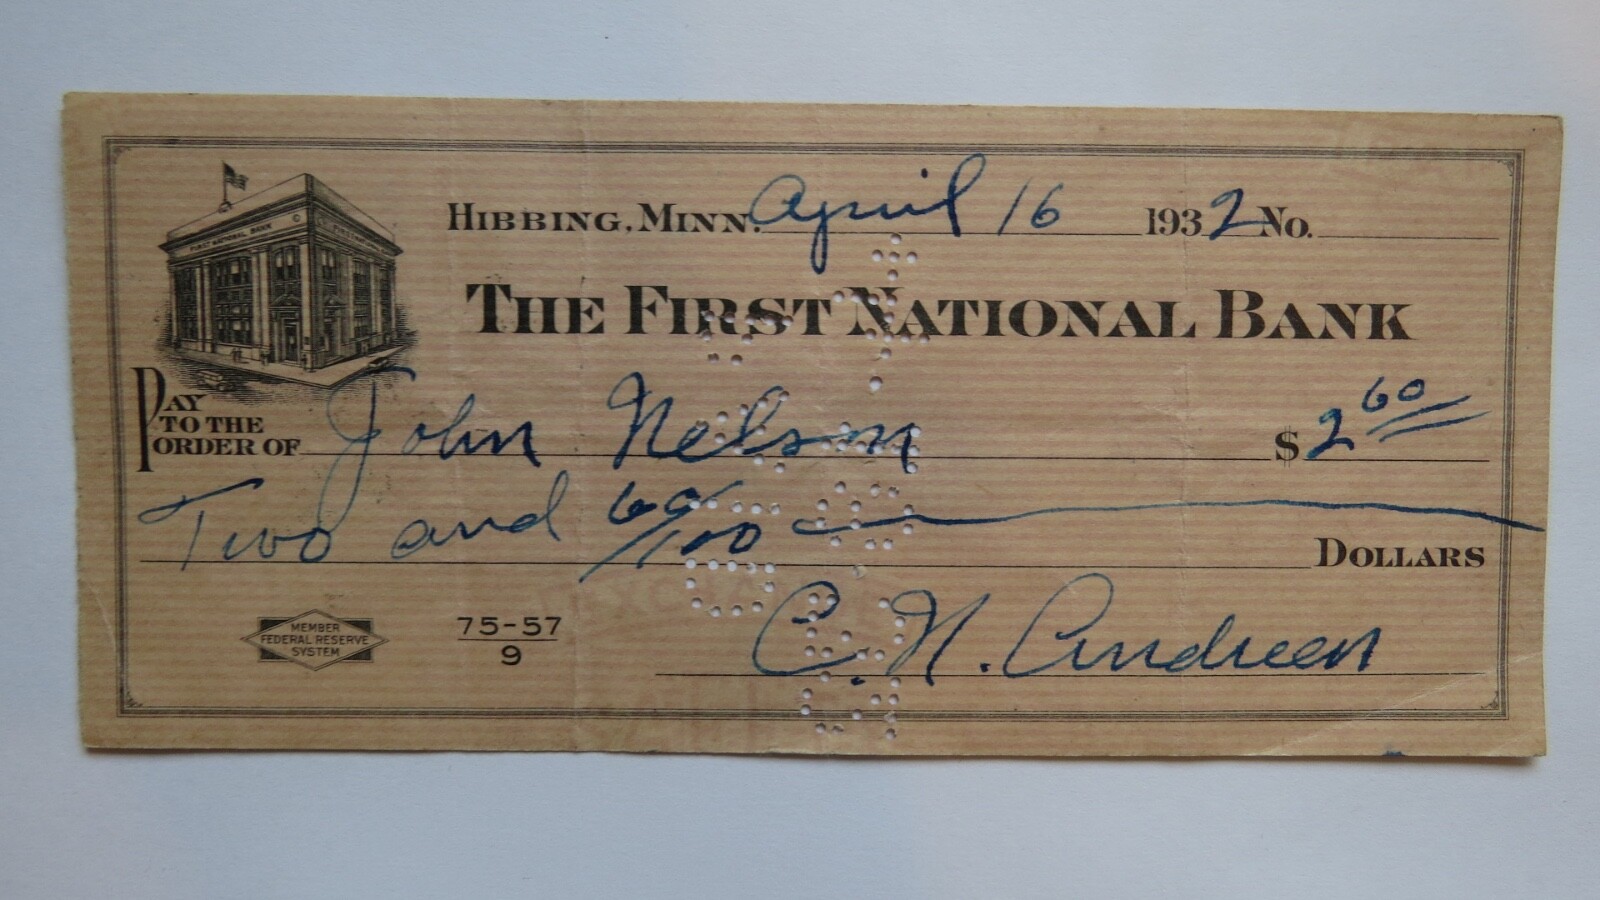 HIBBING, MINN. April 16 1932 No.
FIRST NATIONAL BANK
THE FIRST NATIONAL BANK
PAY TO THE ORDER OF John Nelson $ 2 60
Two and 60/100 DOLLARS
MEMBER
FEDERAL RESERVE
SYSTEM
75-57
9
C. N. Andreen